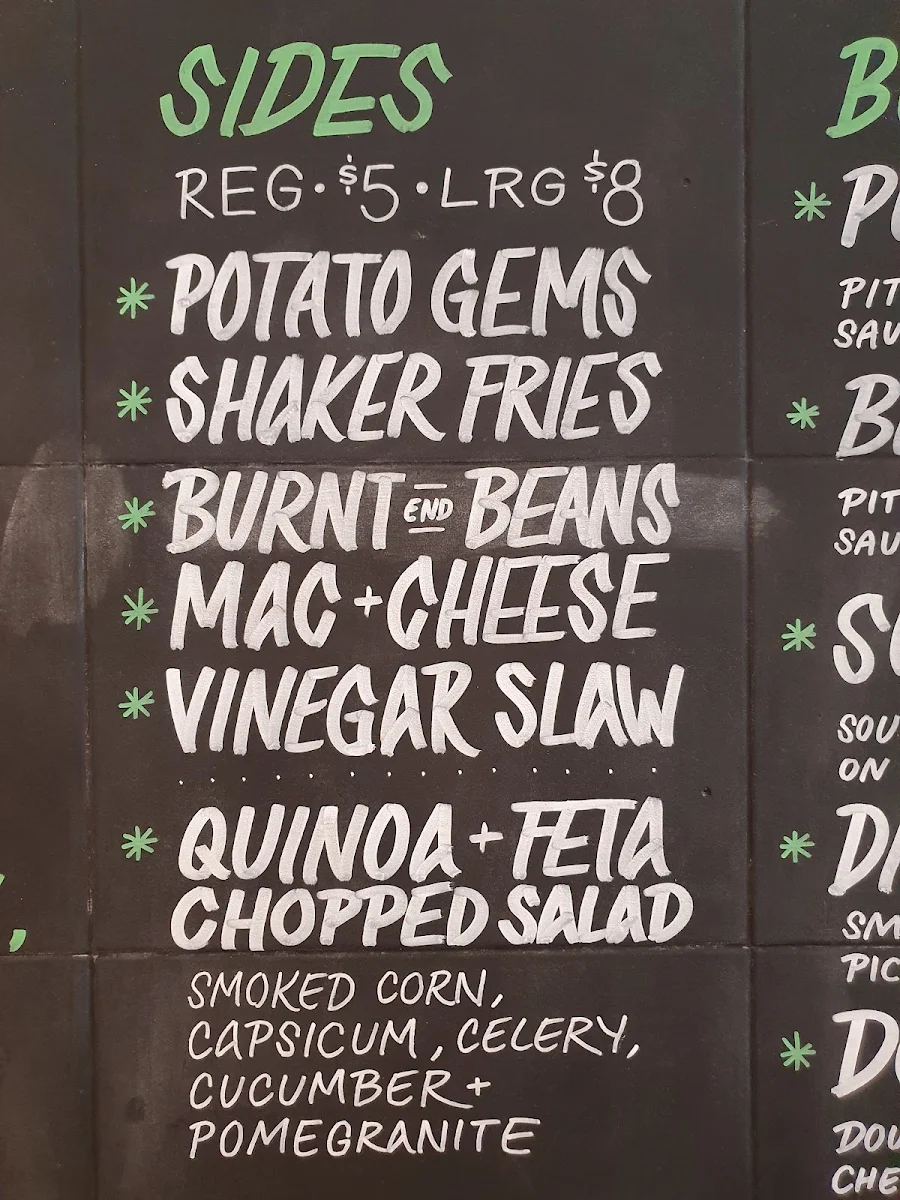 SIDES
REG • $5 • LRG $8
* POTATO GEMS
* SHAKER FRIES
* BURNT END BEANS
* MAC + CHEESE
* VINEGAR SLAW
* QUINOA + FETA
CHOPPED SALAD
SMOKED CORN,
CAPSICUM, CELERY,
CUCUMBER +
POMEGRANITE
ON